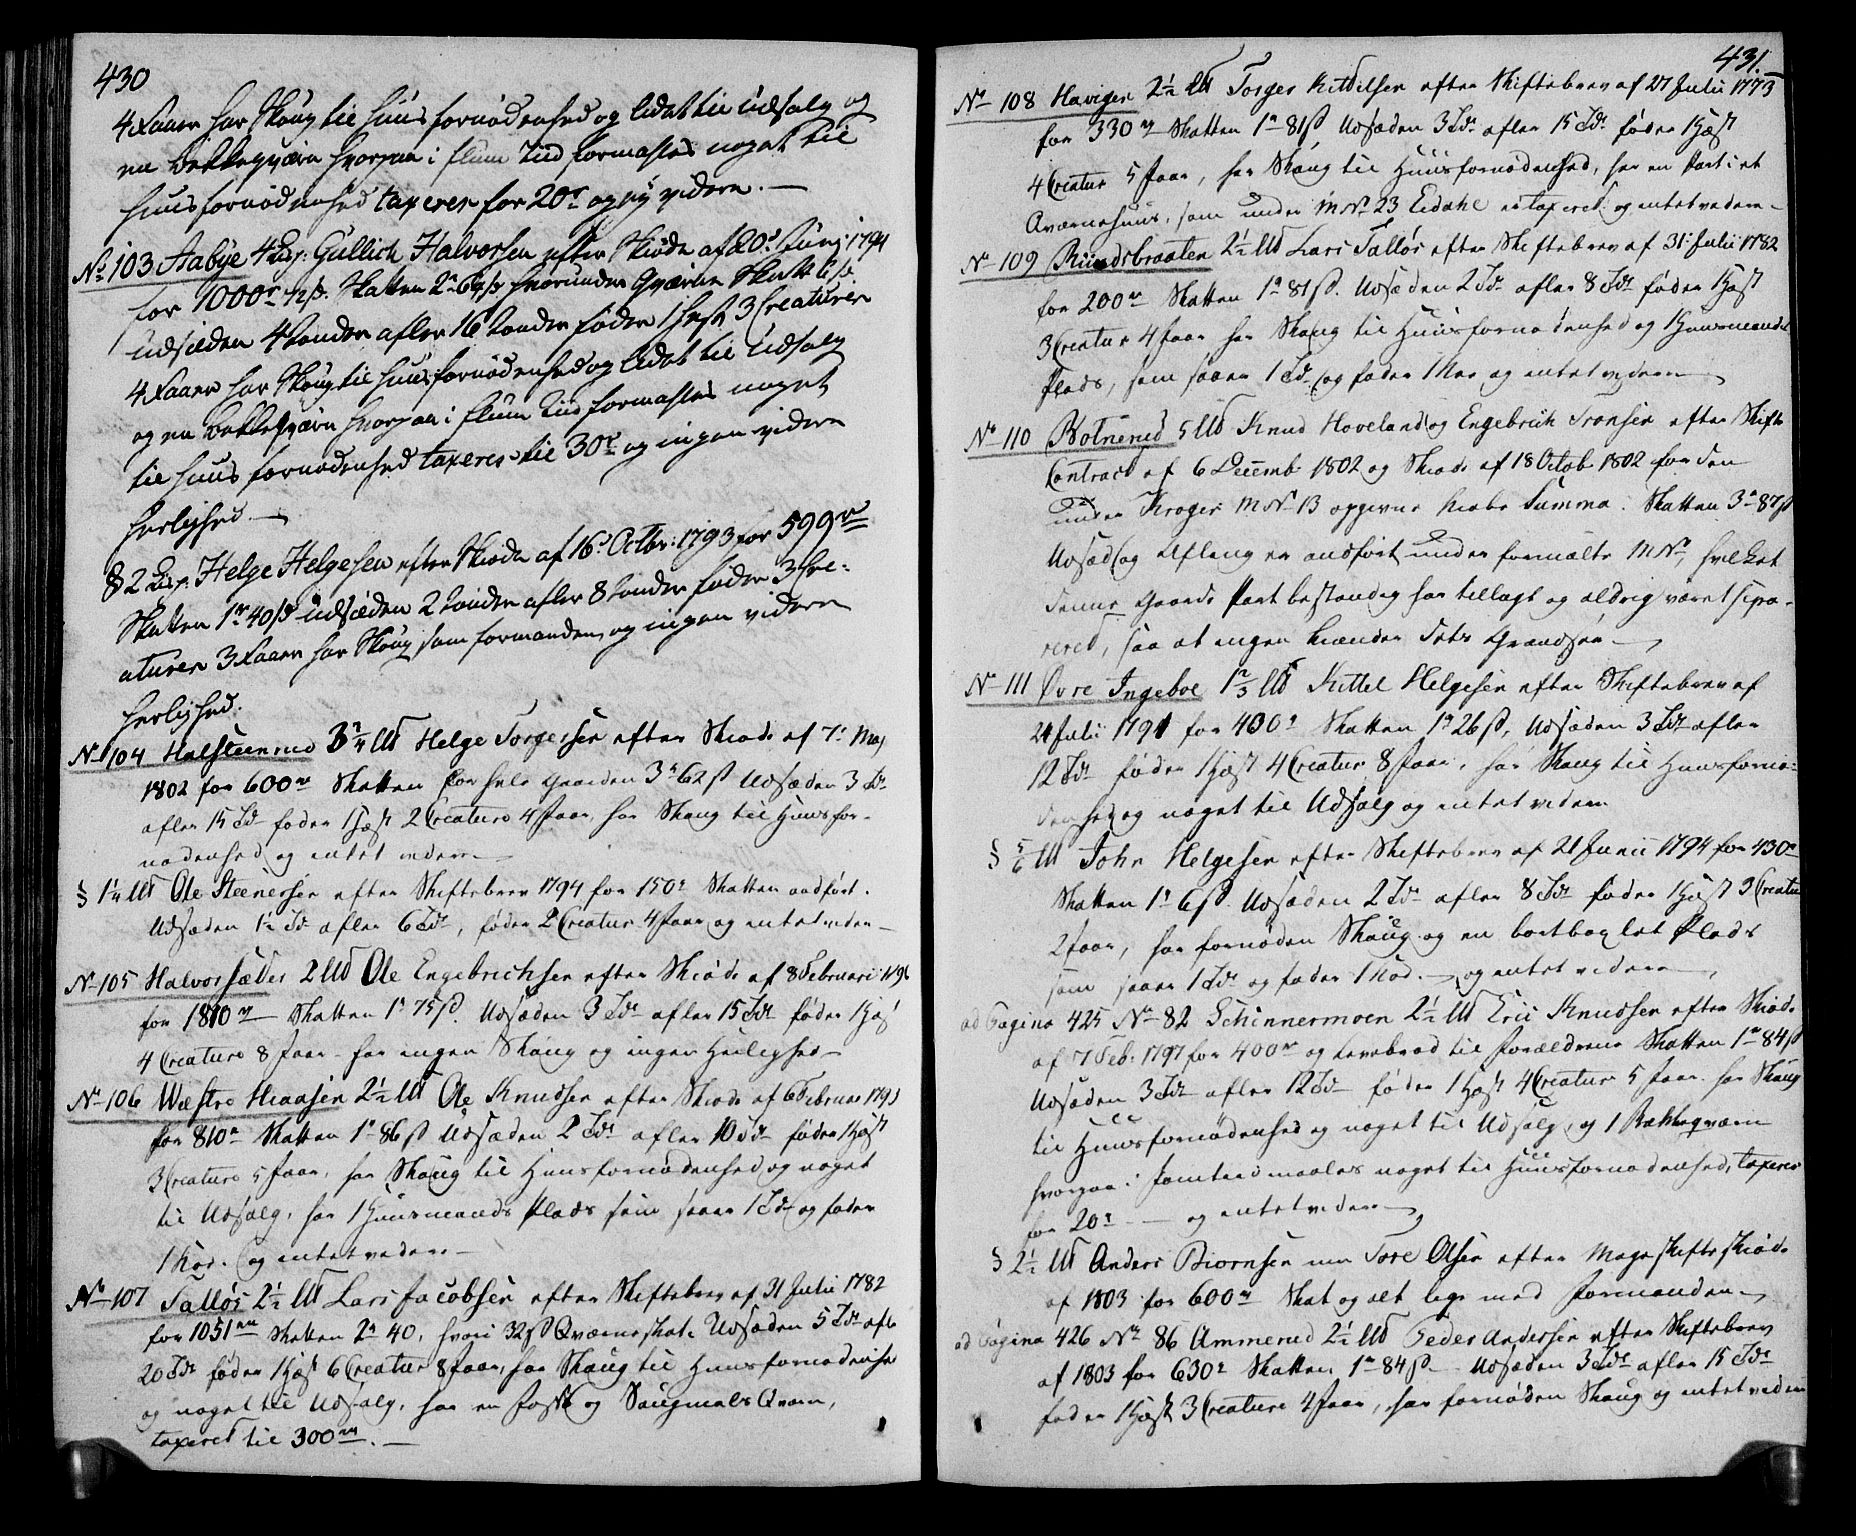 430
4 Faarer har Skoug til Huus fornødenhed og lidet til Udsalg og
en Bekkeqværn hvorpaa i flum Tiid formales noget til
huusfornødenhed taxeres for 20r og ey videre. —
No 103 Aabye 4 Lisp: Gullich Halvorsen efter Skiøde af 20de Junj 1794
for 1000r Skatten 2r 64s hvorunder Qværne Skatt 6s
Udsæden 4 Tønder afler 16 Tønder føder 1 Hest 3 Creaturer
4 Faarer har Skoug til Huus fornødenhed og lidet til Udsalg
og en Bekkeqværn hvorpaa i flum Tiid formales noget
til huus fornødenhed taxeres til 30r og ingen videre
herlighed. —
§ 2 Lisp: Helge Helgesen efter Skiøde af 16de Octbr: 1793 for 599r
Skatten 1r 40s Udsæden 2 Tønder afler 8 Tønder føder 3 Cre-
aturer 3 Faarer har Skoug som formanden, og ingen videre
herlighed.
No 104 Halsteenrud 3 3/4 Ld Helge Torgersen efter Skiøde af 7de Maj
1802 for 600r Skatten for hele Gaarden 3r 62s Udsæden 3 Tdr
afler 15 Tdr føder 1 Hæst 2 Creature 4 Faar, har Skaug til Huusfor-
nødenhed og intet videre —
§ 1 1/4 Ld Ole Steenersen efter Skiftebrev 1794 for 150r Skatten anført.
Udsæden 1 1/2 Tdr afler 6 Tdr, føder 2 Creatur 4 Faar og intet videre —
No 105 Halvorsæter 2 Ld Ole Engebrichsen efter Skiøde af 8 Februari
for 1810r — Skatten 1r 75s. Udsæden 3 Tdr afler 15 Tdr føder 1 Hæst
4 Creature 8 Faar — har ingen Skaug og ingen Herlighed —
No 106 Wæstre Haasen 2 1/2 Ld Ole Knudsen efter Skiøde af 6 Februar
for 810r Skatten 1r 86s Udsæden 2 Tdr afler 10 Tdr føder 1 Hæst
3 Creature 5 Faar, har Skaug til Huusfornødenhed og noget
til Udsalg, har 1 Huusmands Plads som saaer 1 Td og føder
1 Koe. og intet videre —
No 107 Talløs 2 1/2 Ld Lars Jacobsen efter Skiftebrev af 31 Julii 1782
for 1051r Skatten 2r 40, hvori 32s Qværneskat. Udsæden 5 Tdr afler
20 Tdr føder 1 Hæst 6 Creatur 8 Faar, har Skaug til Huusfornødenhed
og noget til Udsalg, har en og Saugmals Qværn,
taxeret til 300r. —
431.
No 108 Havigen 2 1/2 Ld Torger Kittilsen efter Skiftebrev af 27 Julii 1773
for 330r Skatten 1r 81s Udsæden 3 Tdr afler 15 Tdr føder 1 Hæst
4 Creatur 5 Faar, har Skaug til Huusfornødenhed, har en Part i et
Qværnehuus, som under MNo 23 Eidahl er taxeret og intet videre —
No 109 Rundsbraaten 2 1/2 Ld Lars Talløs efter Skiftebrev af 31 Julii 1782
for 200r Skatten 1r 81s. Udsæden 2 Tdr afler 8 Tdr føder 1 Hæst
3 Creatur 4 Faar har Skaug til Huusfornødenhed og 1 Huusmands
Plads, som saaer 1 Td. og føder 1 Koe og intet videre —
No 110 Botnerud 5 Ld Knud Hoveland og Engebrich Tronsen efter Skifte
Contract af 6 Decemb 1802 og Skiøde af 18 Octob 1802 for den
under Kroger MNo 13 opgivne Kiøbe Summa. Skatten 3r 87s
Udsæd og Afleng er anført under formælte MNo, hvilket
denne Gaards Part bestandig har tillagt og aldrig været sepa-
reret, saa at ingen kiænder dets Grændser —
No 111 Øvre Ingeboe 1 2/3 Ld Kittel Helgesen efter Skiftebrev af
21 Julii 1791 for 430r Skatten 1r 26s, Udsæden 3 Tdr afler
12 Tdr føder 1 Hæst 4 Creatur 8 Faar, har Skaug til Huusfornø-
denhed og noget til Udsalg og intet videre
§ 5/6 Ld John Helgesen efter Skiftebrev af 21 Junii 1794 for 430r
Skatten 1r 6s. Udsæden 2 Tdr afler 8 Tdr føder 1 Hæst 3 Creatur
2 Faar, har fornøden Skaug og en bortbøxlet Plads
som saaer 1 Tdr og føder 1 Koe. — og intet videre —,
ad Pagina 425 No 82 Schinnermoen 2 1/2 Ld Eric Knudsen efter Skiøde
af 7 Feb: 1797 for 400r og Levebrød til Forældrene Skatten 1r 84s
Udsæden 3 Tdr afler 12 Tdr føder 1 Hæst 4 Creatur 5 Faar. har Skaug
til Huusfornødenhed og noget til Udsalg, og 1 Bækkeqværn
hvorpaa i flomtiid maales noget til Huusfornødenhed, taxeres
for 20r — og intet videre —
§ 2 1/2 Ld Anders Biørnsen nu Tore Olsen efter Mageskifteskiøde
af 1803 for 600r Skat og alt lige med Formanden —
ad Pagina 426 No 86 Ammerud 2 1/2 Ld Peder Andersen efter Skiftebrev
af 1803 for 630r Skatten 1r 84s — Udsæden 3 Tdr afler 15 Tdr
føder 1 Hæst 3 Creature 4 Faar, har fornøden Skaug og intet videre